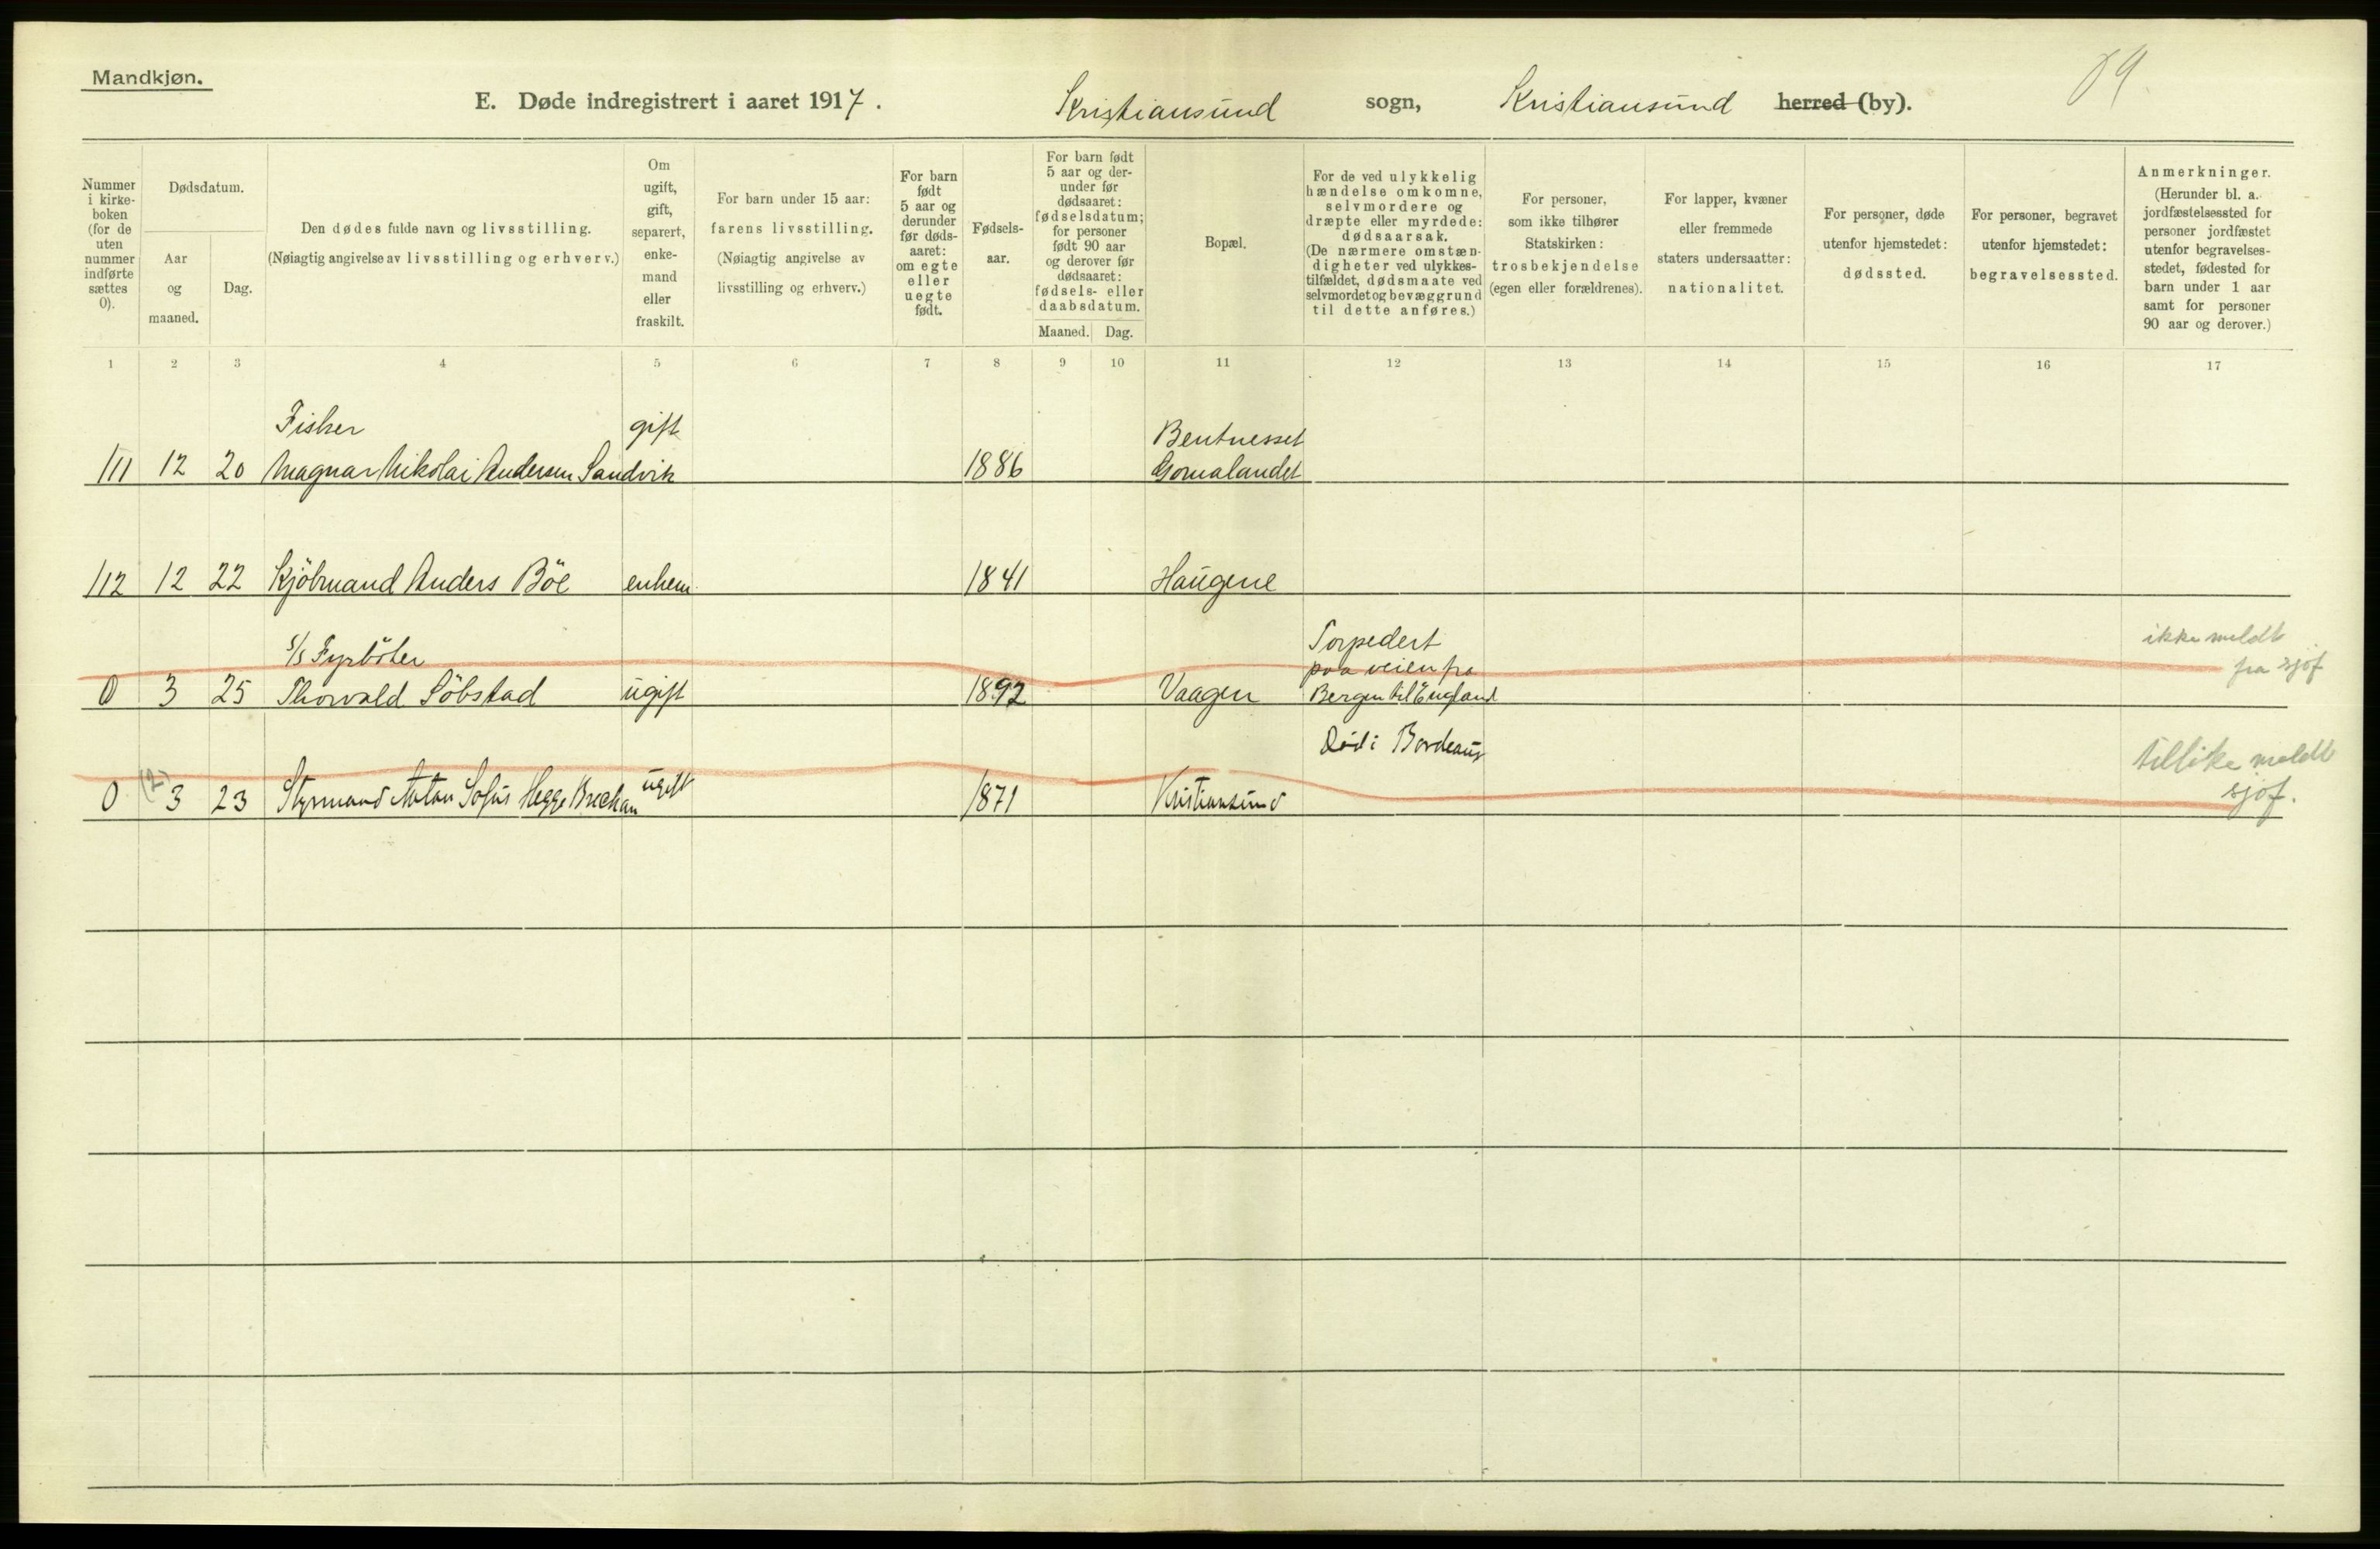 Mandkjøn.
E. Døde indregistrert i aaret 1917. Kristiansund sogn, Kristiansund herred (by).
Nummer i kirke- boken (for de uten nummer indførte sættes 0).
Dødsdatum.
Aar og maaned.
Dag.
Den dødes fulde navn og livsstilling.
(Nøiagtig angivelse av livsstilling og erhverv.)
Om ugift, gift, separert, enke- mand eller fraskilt.
For barn under 15 aar:
farens livsstilling.
(Nøiagtig angivelse av
livsstilling og erhverv.)
For barn født 5 aar og derunder før døds- aaret: om egte eller uegte født.
Fødsels- aar.
For barn født 5 aar og der- under før dødsaaret: fødselsdatum; for personer født 90 aar og derover før dødsaaret: fødsels- eller daabsdatum.
Maaned. Dag.
Bopæl.
For de ved ulykkelig hændelse omkomne, selvmordere og dræpte eller myrdede: dødsaarsak. (De nærmere omstæn- digheter ved ulykkes- tilfældet, dødsmaate ved selvmordet og bevæggrund til dette anføres.)
For personer, som ikke tilhører Statskirken: trosbekjendelse (egen eller forældrenes).
For lapper, kvæner eller fremmede staters undersaatter: nationalitet.
For personer, døde utenfor hjemstedet: dødssted.
For personer, begravet utenfor hjemstedet: begravelsessted.
Anmerkninger. (Herunder bl. a. jordfæstelsessted for personer jordfæstet utenfor begravelses- stedet, fødested for barn under 1 aar samt for personer 90 aar og derover.)
1 2 3 4 5 6 7 8 9 10 11 12 13 14 15 16 17
Fisker gift Bentnesset
111 12 20 Magnar Nikolai Andersen Sandvik 1886 Gomalandet
112 12 22 Kjöbmand Anders Böe enkem. 1841 Haugene
s/s Fyrböter Torpedert ikke meldt
paa veien fra fra sjöf
0 3 25 Thorvald Söbstad ugift 1892 Vaagen Bergen til England
Död i Bordeaux tillike meldt
(2) ugift sjöf.
0 3 23 Styrmand Anton Sofus Hegge Brechan 1871 Kristiansund